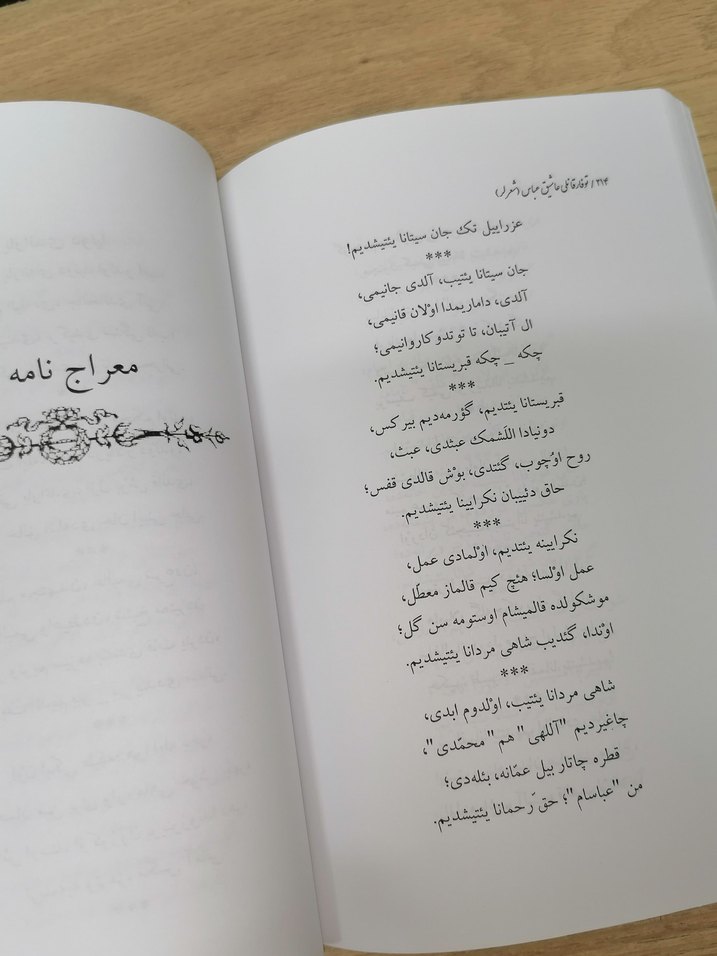 ۲۱۴ / توفارقانلی عاشیق عباس (شعرلر)
عزراییل تک جان سیتانا یئتیشدیم!
***
جان سیتانا یئتیب، آلدی جانیمی،
آلدی، داماریمدا اوْلان قانیمی،
ال آتیبان، تا توتدو کاروانیمی؛
چکه _ چکه قبریستانا یئتیشدیم.
***
قبریستانا یئتدیم، گؤرمه‌دیم بیر کس،
دونیادا اللَشمک عبثدی، عبث،
روح اوُچوب، گئتدی، بوْش قالدی قفس؛
حاق دئییبان نکرایینا یئتیشدیم.
***
نکرایینه یئتدیم، اوْلمادی عمل،
عمل اوْلسا؛ هئچ کیم قالماز معطّل،
موشکولده قالمیشام اوستومه سن گل؛
اوْندا، گئدیب شاهی مردانا یئتیشدیم.
***
شاهی مردانا یئتیب، اوْلدوم ابدی،
چاغیردیم "آللهی" هم "محمّدی"،
قطره چاتار بیل عمّانه، بئله‌دی؛
من "عباسام"؛ حق رّحمانا یئتیشدیم.
معراج نامه